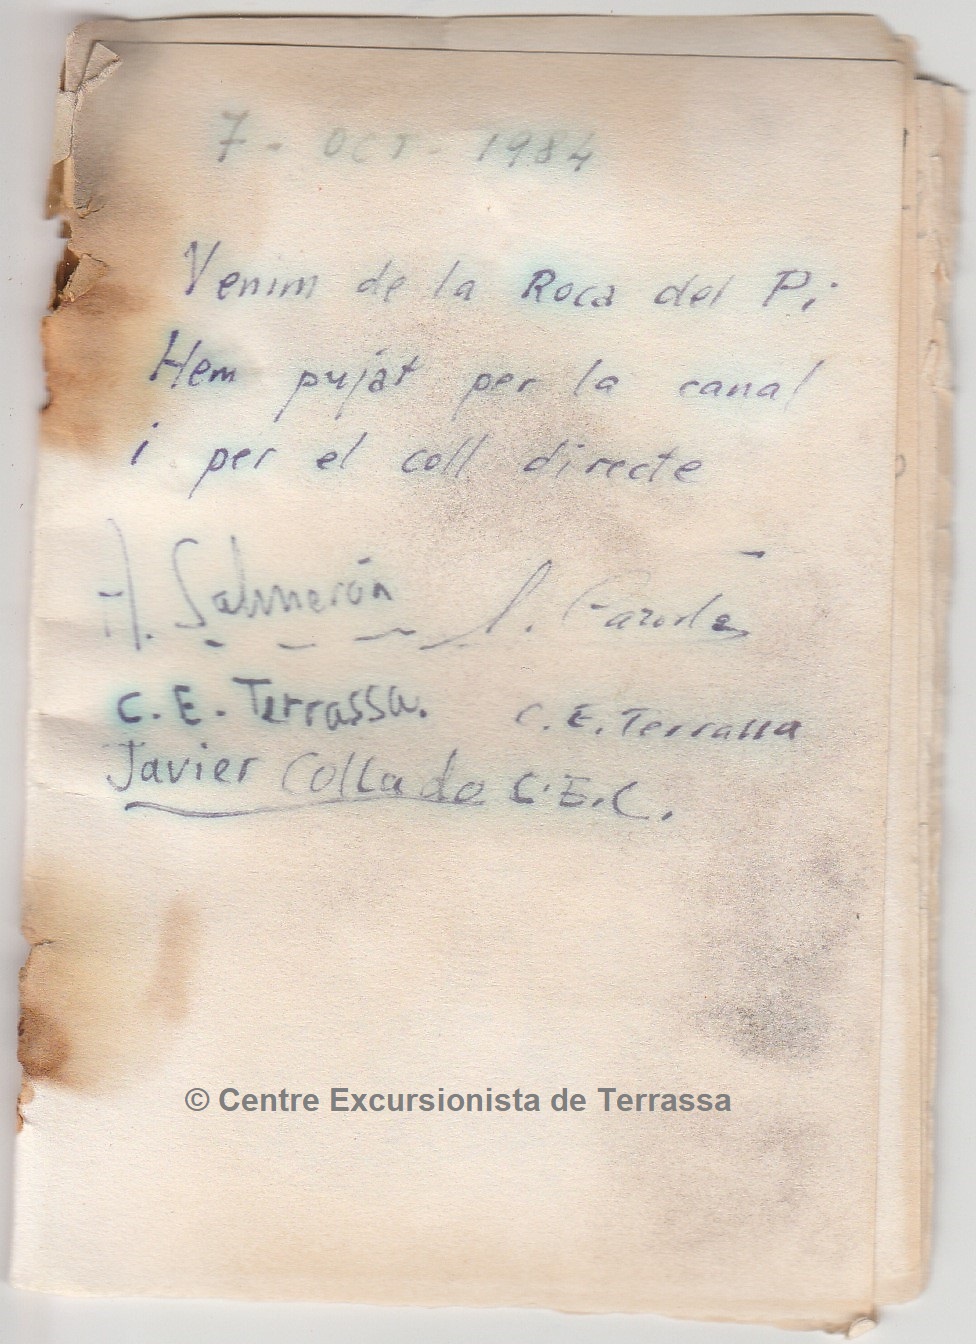 7 - OCT - 1984
Venim de la Roca del Pi
Hem pujat per la canal
i per el coll directe
A. Salmerón
C. E. Terrassa. C. E. Terrassa
Javier Collado C.E.C.
© Centre Excursionista de Terrassa